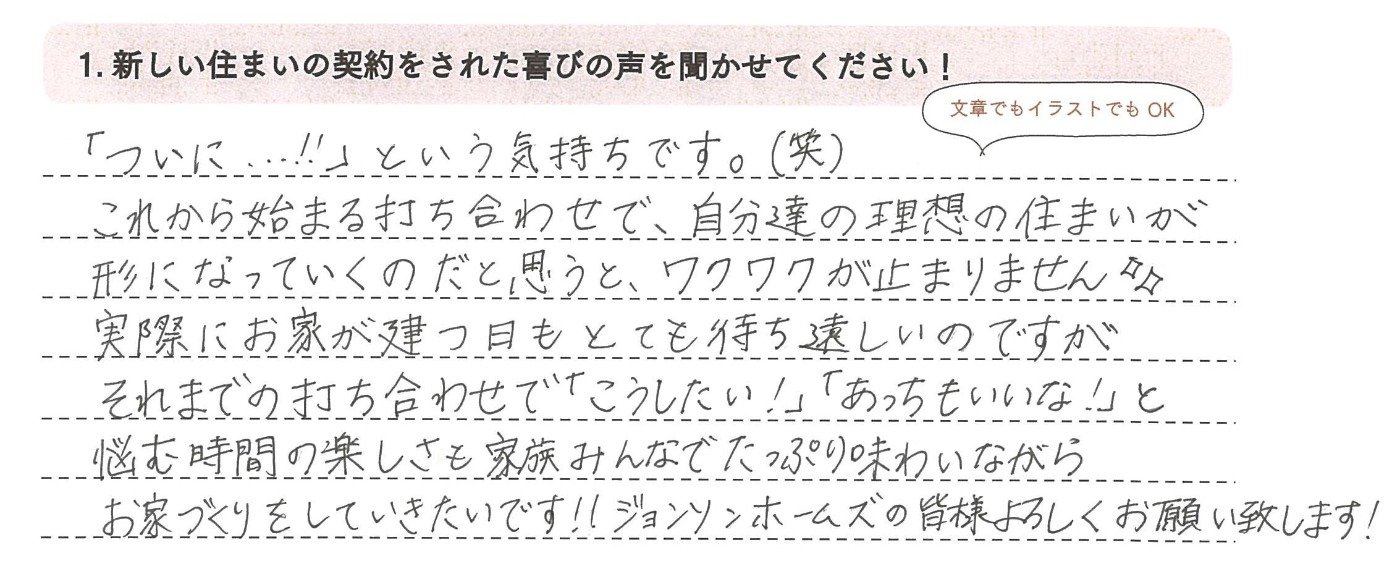 1. 新しい住まいの契約をされた喜びの声を聞かせてください！
文章でもイラストでも OK
「ついに…!!」という気持ちです。(笑)
これから始まる打ち合わせで、自分達の理想の住まいが
形になっていくのだと思うと、ワクワクが止まりません☆☆
実際にお家が建つ日もとても待ち遠しいのですが
それまでの打ち合わせで「こうしたい！」「あっちもいいな！」と
悩む時間の楽しさも家族みんなでたっぷり味わいながら
お家づくりをしていきたいです!!ジョンソンホームズの皆様よろしくお願い致します！